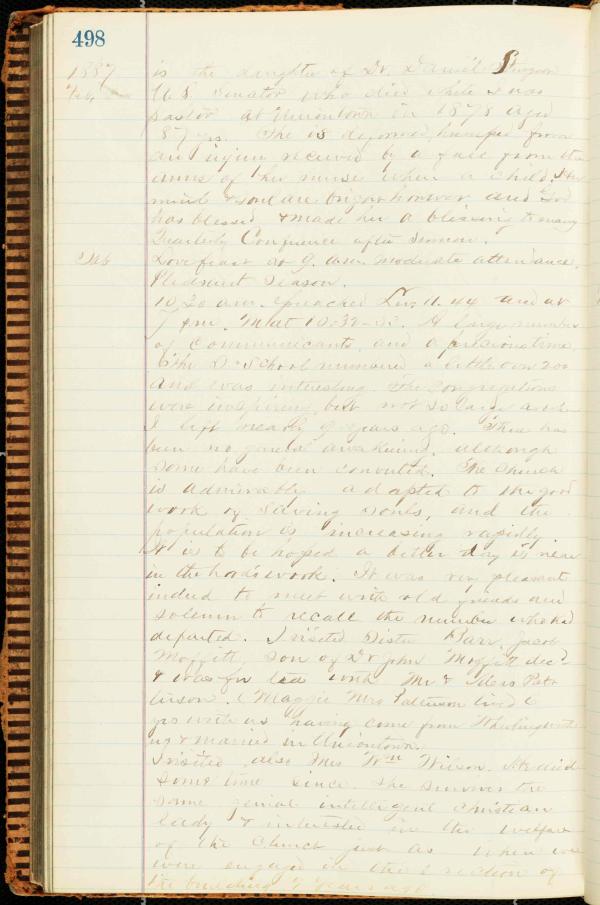 498
1887 is the daughter of Dr. Daniel Sturgeon
Feb, U S Senator who died while I was
pastor at Uniontown in 1878 aged
87 yrs. She is deformed, humped from
an injury received by a fall from the
arms of her nurse when a child. Her
mind & soul are bright however and God
has blessed & made her a blessing to many
Quarterly Conference after sermon.
Feb 6 Lovefeast at 9. a.m. moderate attendance.
Pleasant season.
10.30 a.m. Preached 11.44 and at
7 p.m. Mat 10-32-33. A large number
of communicants, and a precious time
The S. School numbered a little over 200
and was interesting. The congregations
were inspiring, but not so large as when
I left nearly 9 years ago. There has
been no general awakening, although
some have been converted. The church
is admirably adapted to the good
work of saving souls, and the
population is increasing rapidly.
It is to be hoped a better day is near
in the Lord's work. It was very pleasant
indeed to meet with old friends and
solemn to recall the number who had
departed. I visited Sister Barr, Jacob
Moffitt, son of Dr John Moffitt dec'd
& was with Mr & Mrs Pat-
terson. (Maggie Mrs Patterson lived 6
yrs with us having come from Wheeling with
us & married in Uniontown.
I visited also Mrs Wm Wilson. He died
some time since. She survives the
same genial intelligent Christian
lady & interested in the welfare
of the Church just as when we
were engaged in the erection of
the building 9 years ago.